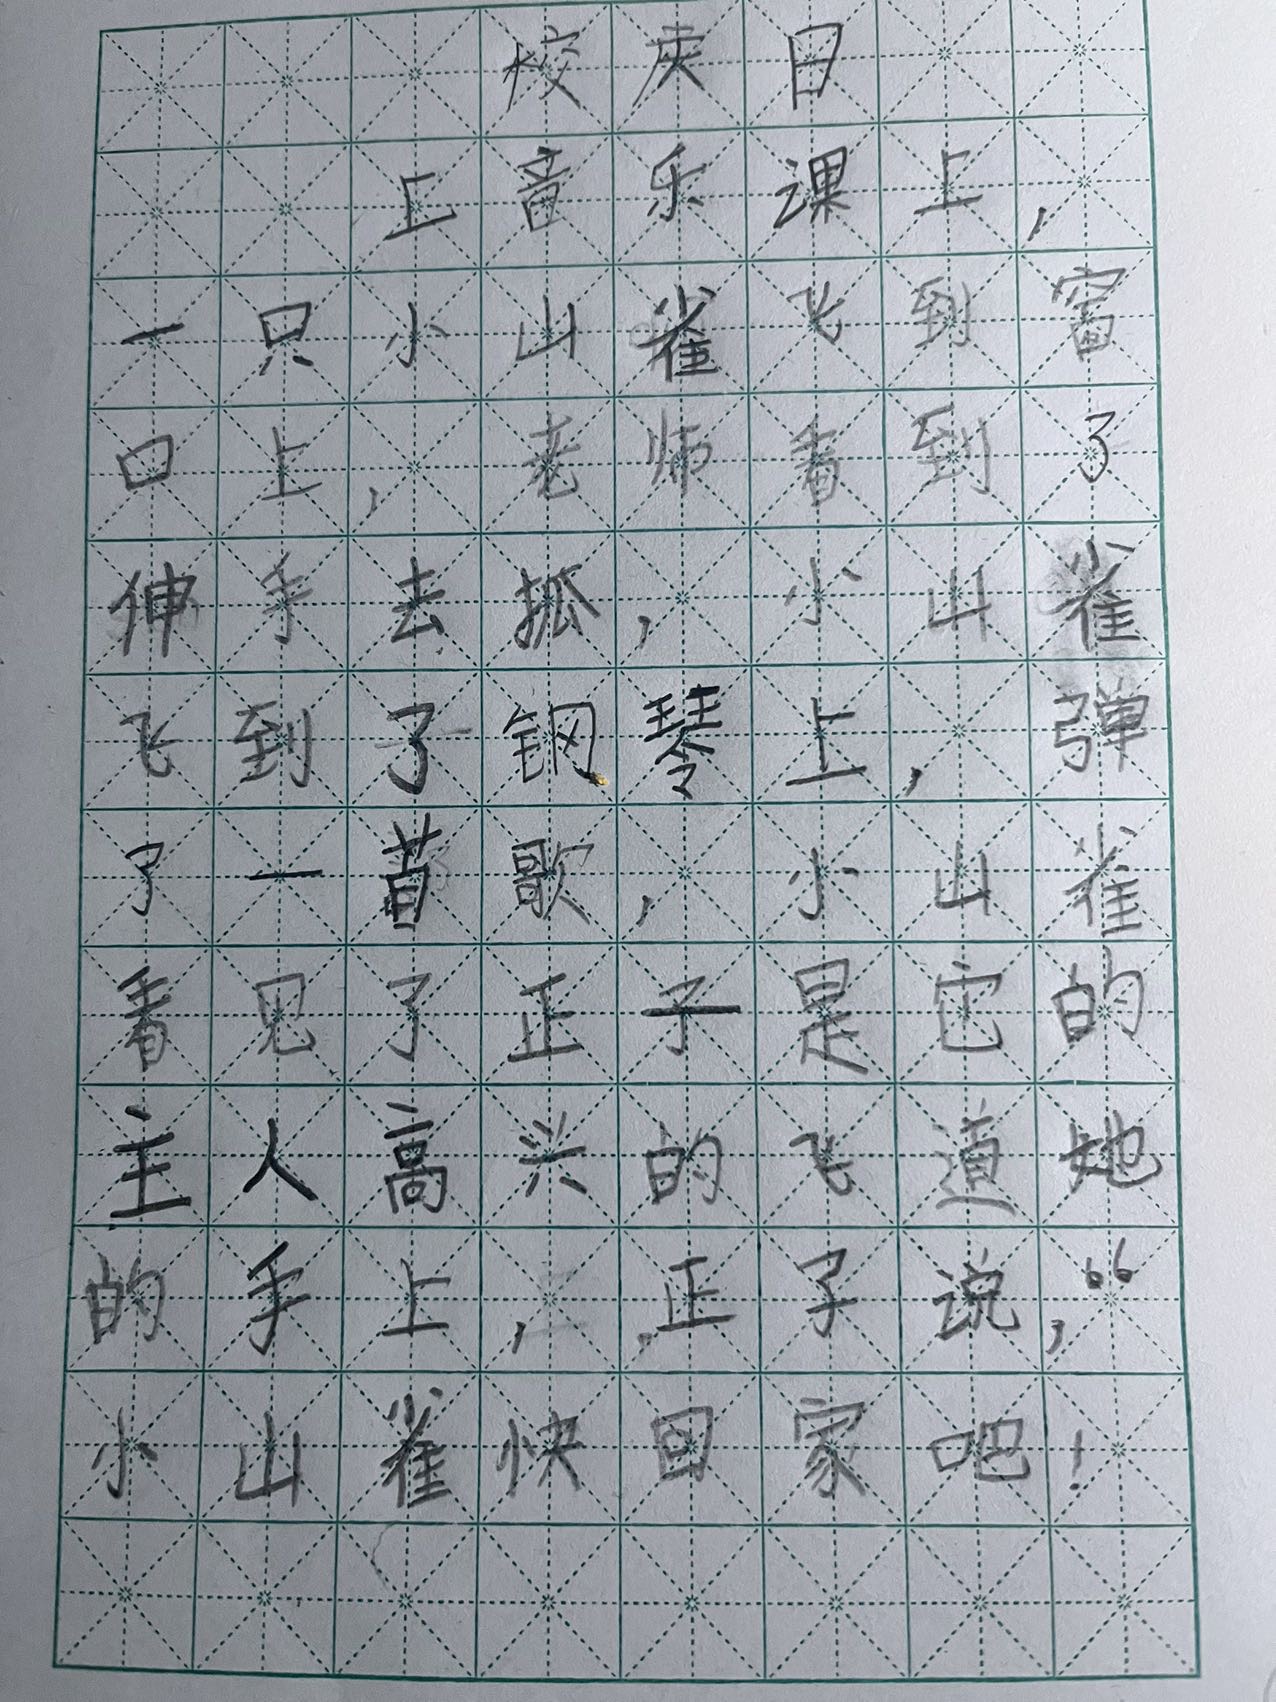 校庆日
上音乐课上，
一只小山雀飞到窗
口上，老师看到了
伸手去抓，小山雀
飞到了钢琴上，弹
了一首歌，小山雀
看见了正子是它的
主人高兴的飞道她
的手上，正子说，“
小山雀快回家吧！